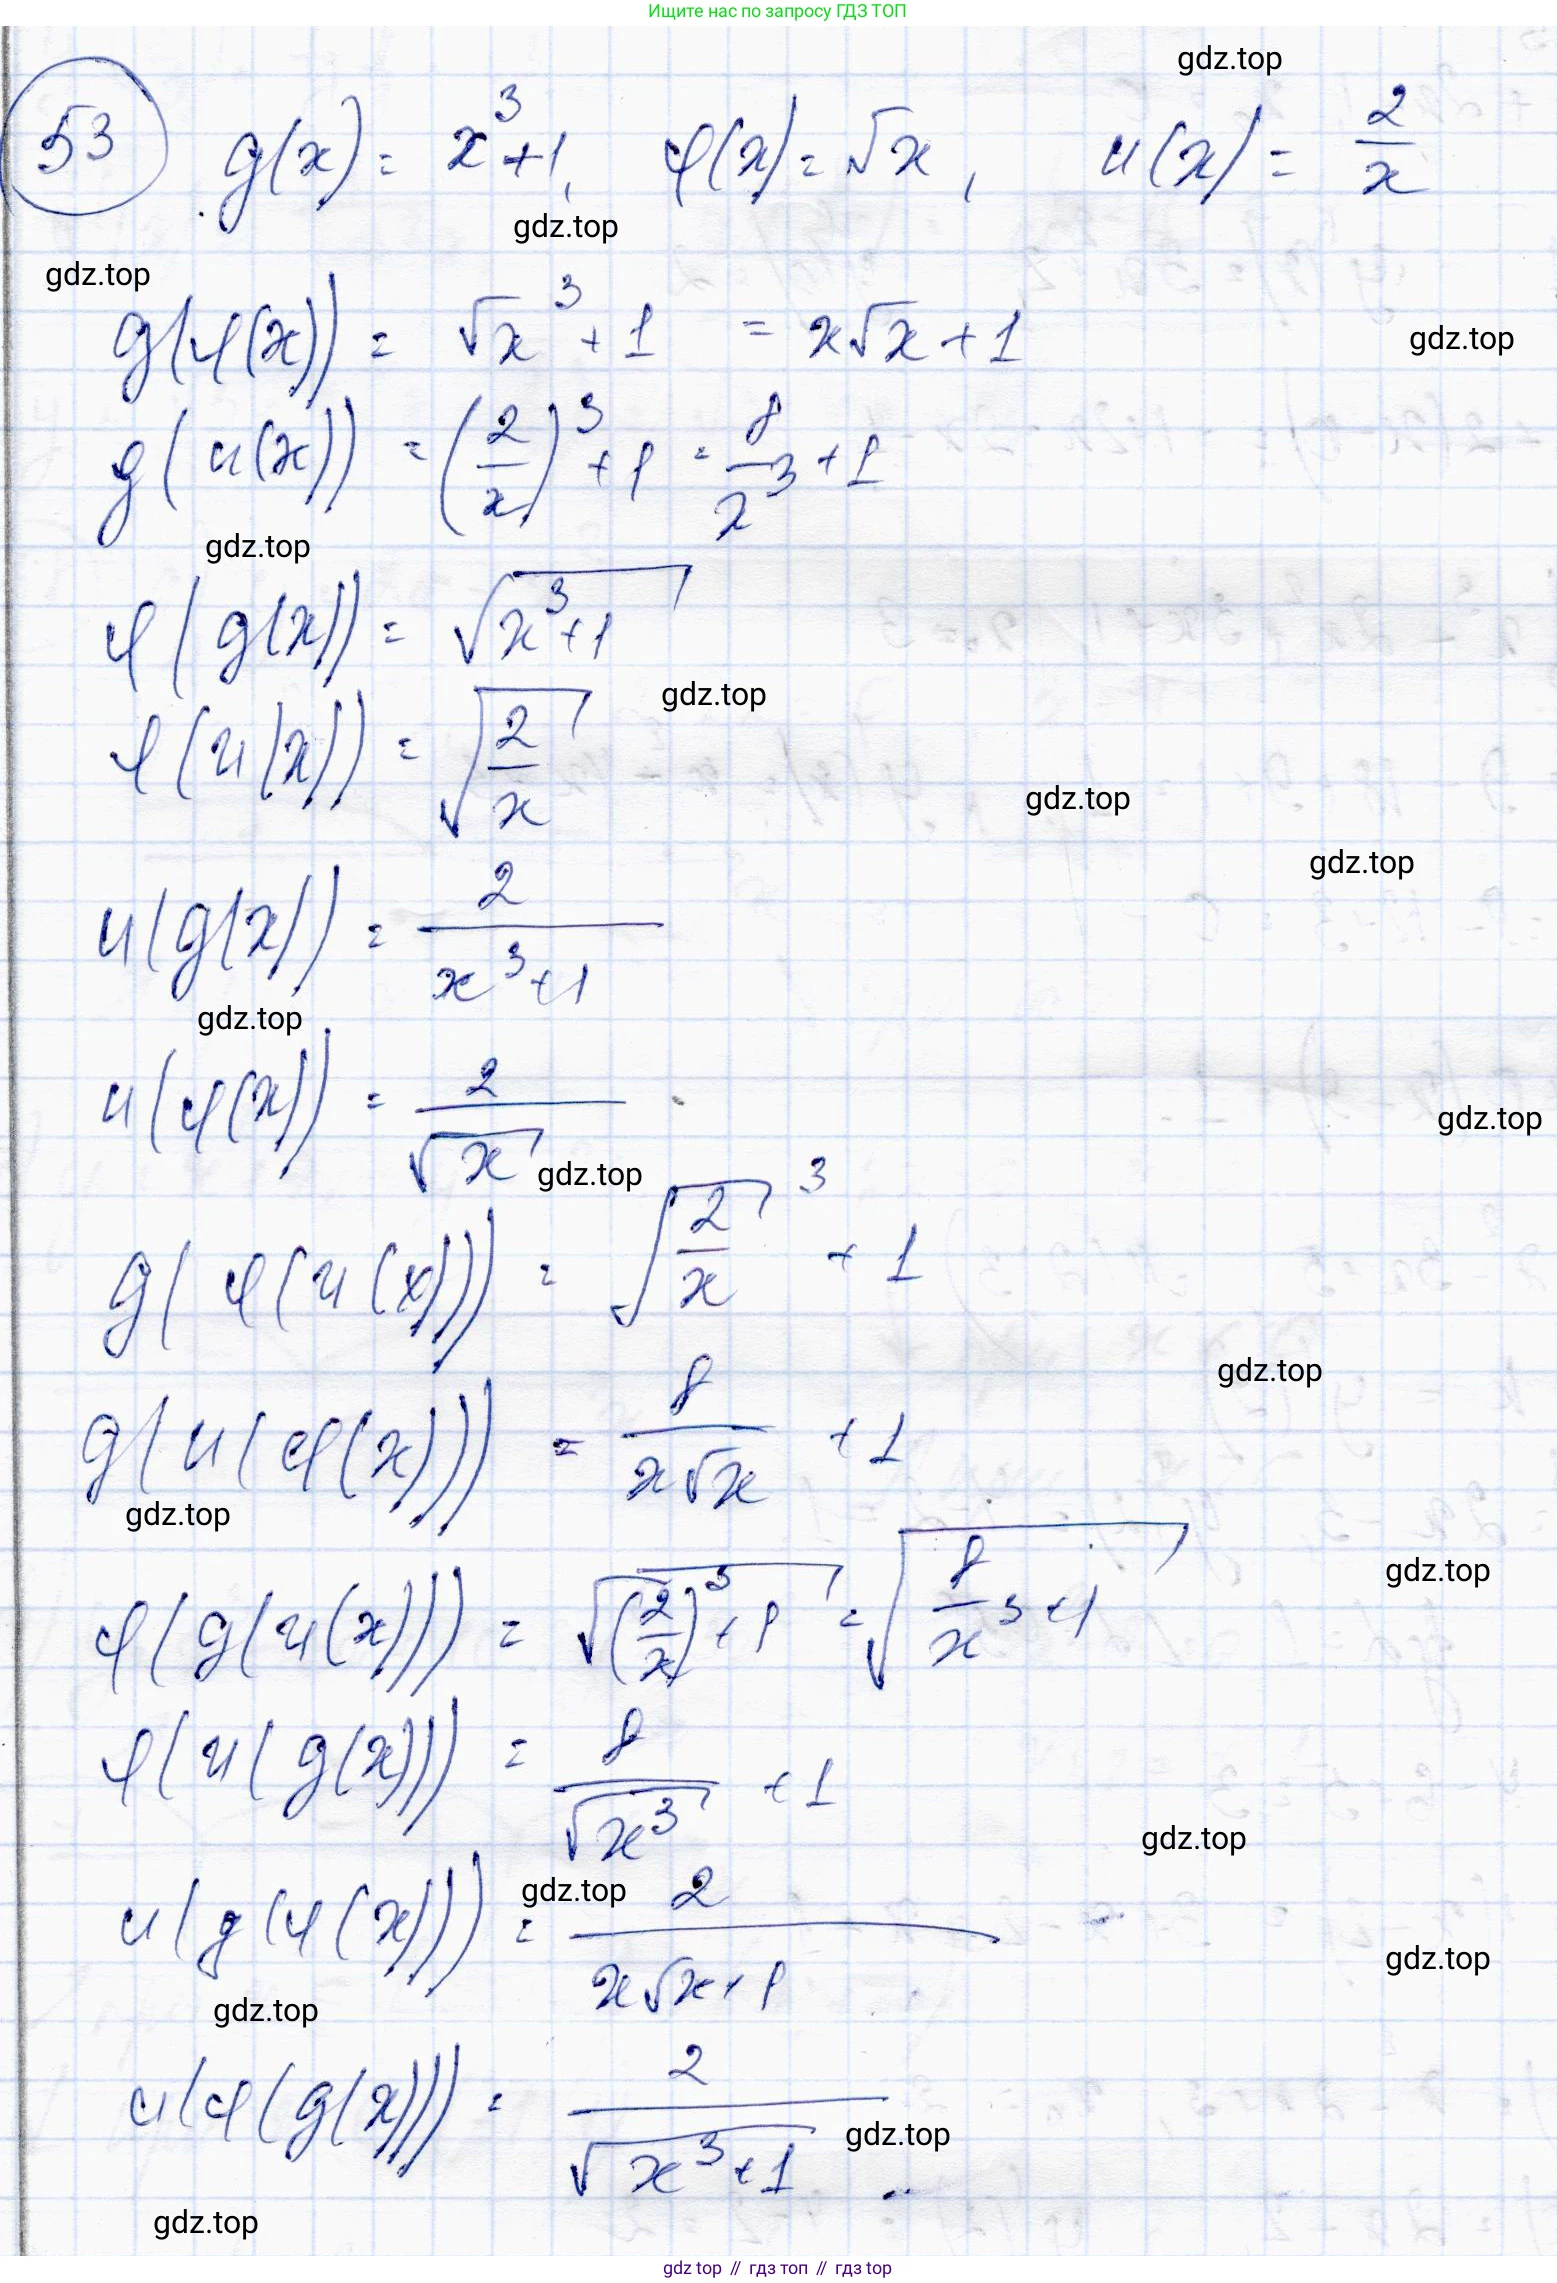 Ищите нас по запросу ГДЗ ТОП
gdz.top
53 g(x) = x³+1, φ(x) = √x, u(x) = 2/x
gdz.top
gdz.top
g(φ(x)) = √x³ + 1 = x√x + 1
gdz.top
g(u(x)) = (2/x)³ + 1 = 8/x³ + 1
gdz.top
φ(g(x)) = √(x³+1)
gdz.top
φ(u(x)) = √(2/x)
gdz.top
gdz.top
u(g(x)) = 2/(x³+1)
gdz.top
u(φ(x)) = 2/√x
gdz.top
gdz.top
g(φ(u(x))) = √(2/x)³ + 1
gdz.top
g(u(φ(x))) = 8/(x√x) + 1
gdz.top
gdz.top
φ(g(u(x))) = √((2/x)³+1) = √(8/x³+1)
φ(u(g(x))) = 8/√(x³) + 1
gdz.top
gdz.top
u(g(φ(x))) = 2/(x√x+1)
gdz.top
gdz.top
u(φ(g(x))) = 2/√(x³+1)
gdz.top
gdz.top
gdz top // гдз топ // гдз top